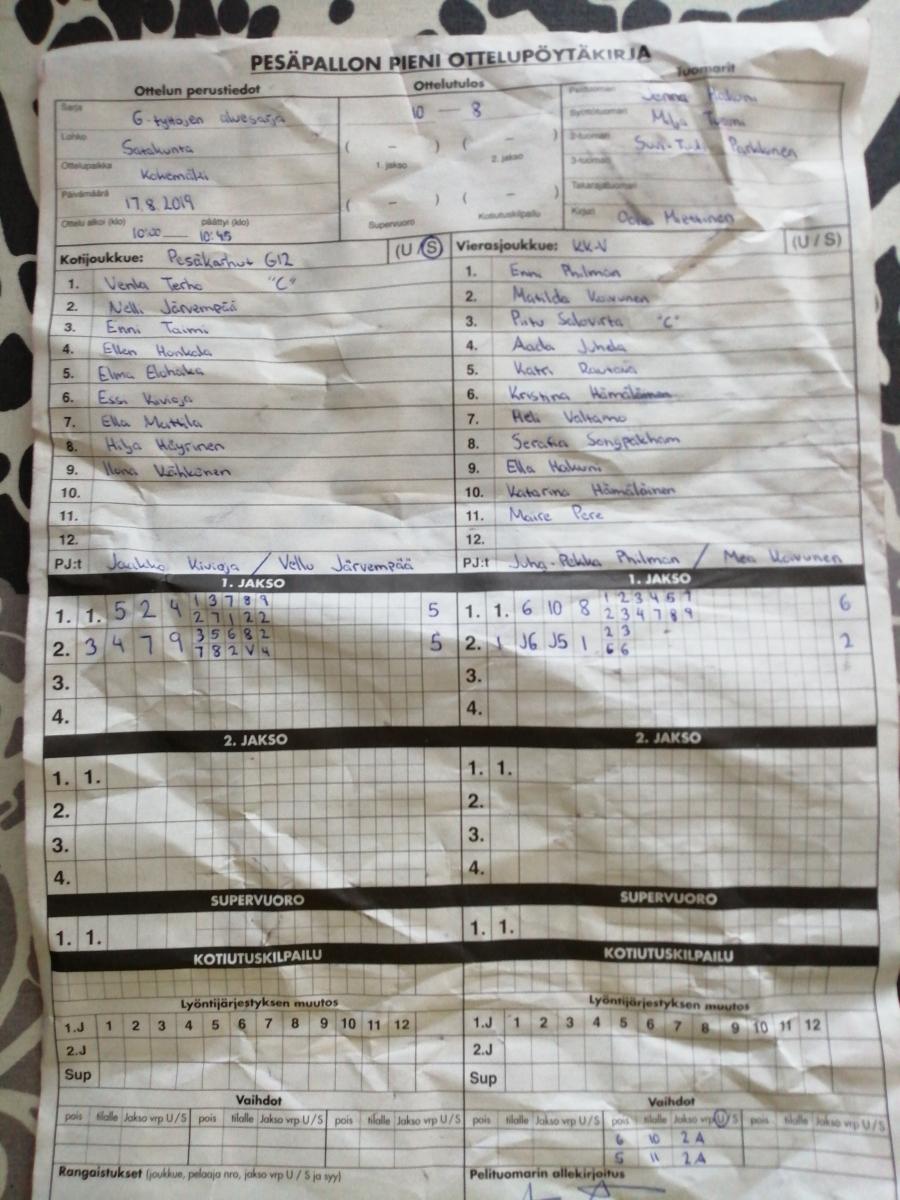 PESÄPALLON PIENI OTTELUPÖYTÄKIRJA
Ottelun perustiedot
Ottelutulos
Tuomarit
Sarja G-tyttöjen aluesarja
Lohko Satakunta
Ottelupaikka Kokemäki
Päivämäärä 17.8.2019
Ottelu alkoi (klo) päättyi (klo)
10:00 — 10:45
10 — 8
( – ) ( – )
1. jakso 2. jakso
( – ) ( – )
Supervuoro Kotiutuskilpailu
Pelituomari Jenna Hakuni
Syöttötuomari Milja Tuomi
2-tuomari Parkkunen
3-tuomari
Takarajatuomari
Kirjuri Oona Miettinen
Kotijoukkue: Pesäkarhut G12 (U / S)
1. Venla Terho "C"
2. Nelli Järvempää
3. Enni Taimi
4. Ellen Honkala
5. Elma
6. Essi Kivioja
7. Ella Mattila
8. Hilja Häyrinen
9. Ilona Kähkönen
10.
11.
12.
PJ:t Jaakko Kivioja / Vello Järvempää
Vierasjoukkue: KK-V (U / S)
1. Enni Philman
2. Matilda Koivunen
3. Piitu Salovirta "C"
4. Aada Juhda
5. Katri Rautava
6. Kristina Hämäläinen
7. Heli Valtamo
8. Serafia Songpakham
9. Ella Hakuni
10. Katarina Hämäläinen
11. Maire Pere
12.
PJ:t Juha-Pekka Philman / Mea Koivunen
1. JAKSO
1. 1. 5 2 4 1 3 7 8 9 5
2 7 1 2 2
2. 3 4 7 9 3 5 6 8 2 5
7 8 2 V 4
3.
4.
1. JAKSO
1. 1. 6 10 8 1 2 3 4 5 7 6
2 3 4 7 8 9
2. 1 J6 J5 1 2 3 2
6 6
3.
4.
2. JAKSO
1. 1.
2.
3.
4.
2. JAKSO
1. 1.
2.
3.
4.
SUPERVUORO
1. 1.
SUPERVUORO
1. 1.
KOTIUTUSKILPAILU
KOTIUTUSKILPAILU
Lyöntijärjestyksen muutos
1.J 1 2 3 4 5 6 7 8 9 10 11 12
2.J
Sup
Lyöntijärjestyksen muutos
1.J 1 2 3 4 5 6 7 8 9 10 11 12
2.J
Sup
Vaihdot
pois tilalle Jakso vrp U / S pois tilalle Jakso vrp U / S pois tilalle Jakso vrp U / S
Vaihdot
pois tilalle Jakso vrp U / S pois tilalle Jakso vrp U / S pois tilalle Jakso vrp U / S
6 10 2 A
5 11 2 A
Rangaistukset (joukkue, pelaaja nro, jakso vrp U / S ja syy)
Pelituomarin allekirjoitus